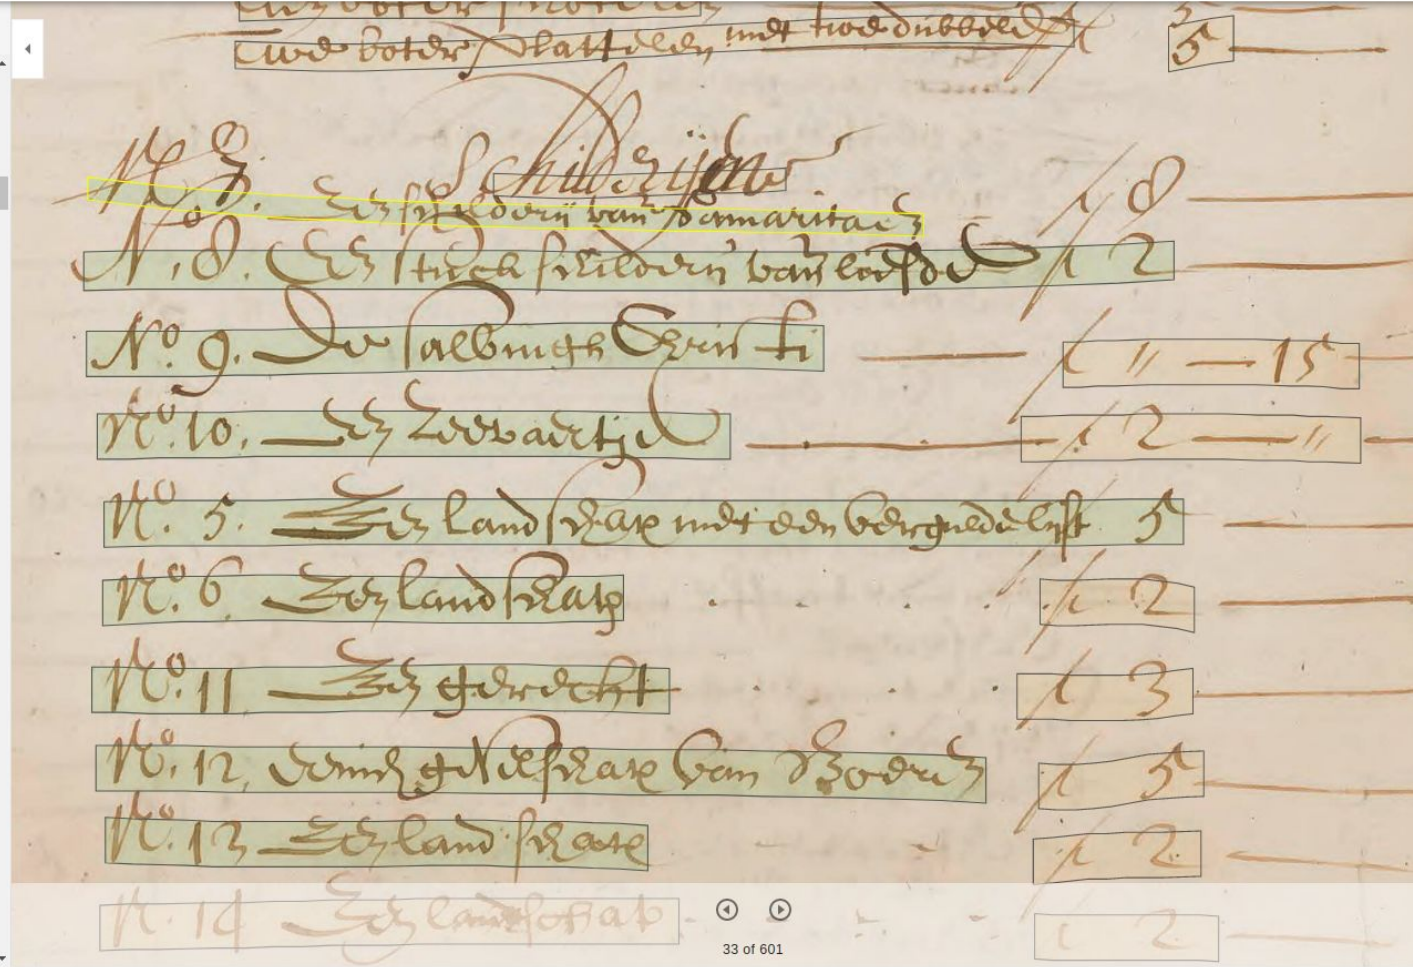 Twe boter plattelen met twe dubbelde 5
Schilderijen
N 3. Een schilderij van Samaritaen 8
No. 8. Een stuck schilderij van liefde 2
No. 9. De salvingh Christi " — 15
No. 10. Een Zeevaertje 2 — "
No. 5. Een landschap met een vergulde lijst 5
No. 6 Een landschap 2
No. 11 Een gerecht 3
No. 12, eenich geselschap van Boeren 5
No. 13 Een landschap 2
N. 14 Een landschap 2
33 of 601